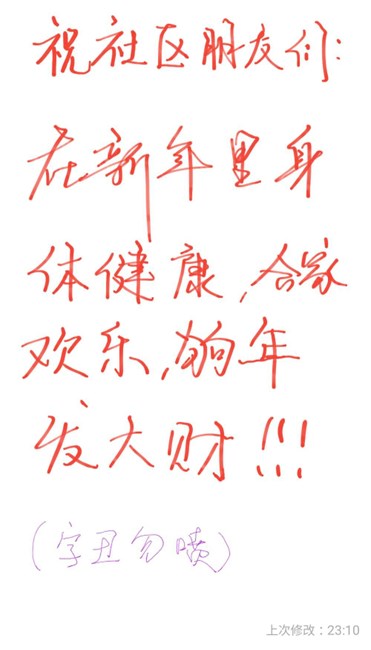 祝社区朋友们:
在新年里身
体健康,合家
欢乐,狗年
发大财!!!
(字丑勿喷)
上次修改：23:10